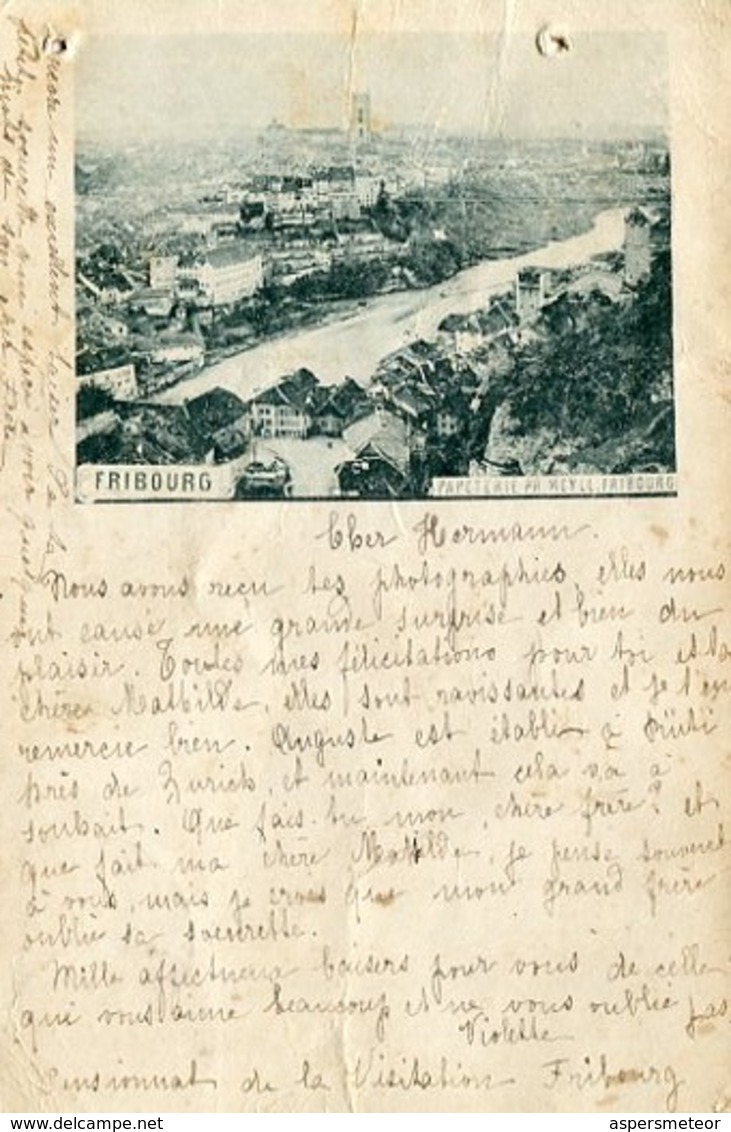 FRIBOURG
PAPETERIE PH. MEYLL, FRIBOURG
Cher Hermann.
Nous avons reçu tes photographies, elles nous
ont causé une grande surprise et bien du
plaisir. Toutes mes félicitations pour toi et ta
chère Mathilde, elles sont ravissantes et je t'en
remercie bien. Auguste est établi à Rüti
près de Zurich, et maintenant cela va à
souhait. Que fais-tu mon, chère frère? et
que fait ma chère Mathilde, je pense souvent
à vous, mais je crois que mon grand frère
oublie sa soeurette.
Mille affectueux baisers pour vous de celle
qui vous aime beaucoup et ne vous oublie pas
Violette
Pensionnat de la Visitation Fribourg
encore un excellent baiser de la
petite soeurette qui espère avoir
mots de son cher frère
aspersmeteor